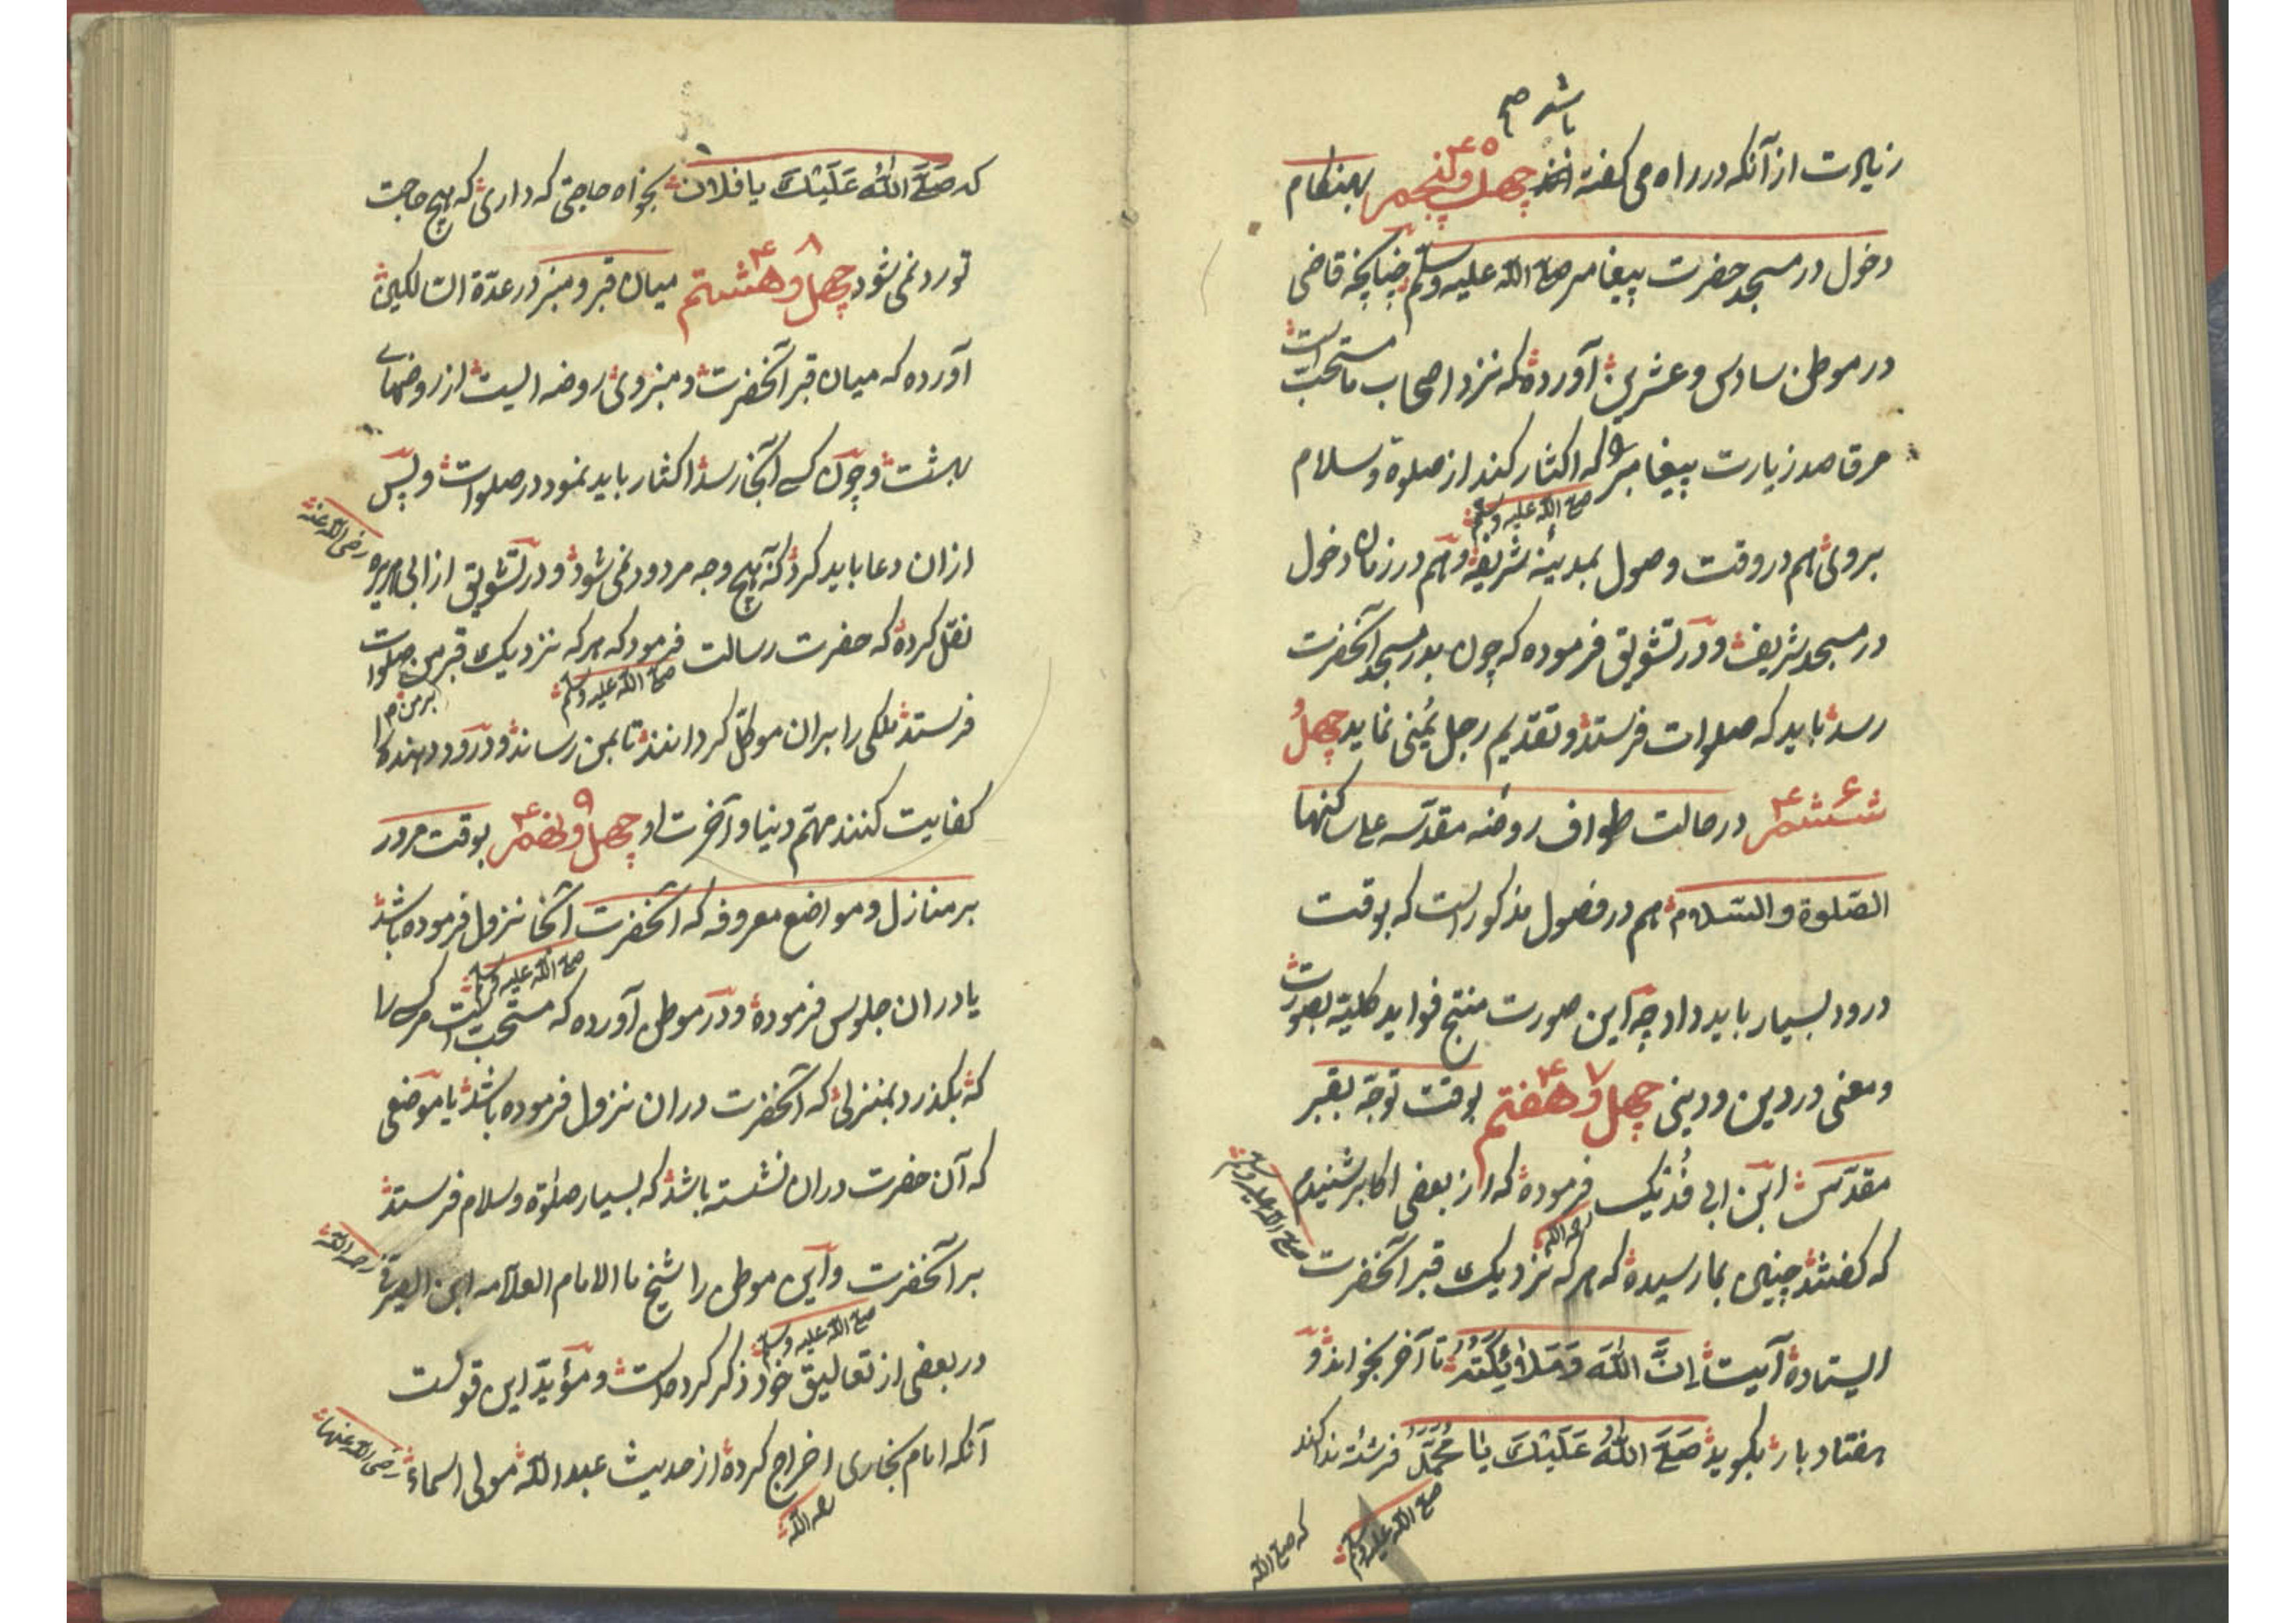 باشد صح
زیارت از آنکه در راه می گفته اند چهل و پنجم ۴۵ بهنکام
دخول در مسجد حضرت پیغامبر صلی الله علیه وسلم چنانچه قاضی
در موطن سادس و عشرین آورده که نزد اصحاب ما مستحب است
مر قاصد زیارت پیغامبر را که اکثار کند از صلوة و سلام
صلی الله علیه وسلم
بروی هم در وقت وصول بمدینه شریفه و هم در زمان دخول
در مسجد شریف و در تشویق فرموده که چون بدر مسجد آنحضرت
رسد باید که صلوات فرستد و تقدیم رجل یمنی نماید چهل و
ششم ۴۶ در حالت طواف روضه مقدسه علی ساکنها
الصلوة والسلام هم در فصول مذکور است که بوقت
درود بسیار باید داد چه این صورت منتج فواید کلیه بصورت
و معنی در دین و دینی چهل و هفتم ۴۷ بوقت توجه بقبر
مقدس ابن ابی فدیک فرموده که از بعضی اکابر شنیدم
رحمه الله
که گفتند چنین بما رسیده که هر که نزدیک قبر آنحضرت
صلی الله علیه وسلم
ایستاده آیت إن الله وملائكته تا آخر بخواند و
هفتاد بار بگوید صَلَّی اللهُ عَلَیْكَ یَا مُحَمَّدُ فرشته ندا کند
صلی الله علیه وسلم
که صلی الله
که صَلَّی اللهُ عَلَیْكَ یا فلان بخواه حاجتی که داری که هیچ حاجت
تو رد نمی شود چهل و هشتم ۴۸ میان قبر و منبر در عدة السالکین
آورده که میان قبر آنحضرت و منبر وی روضه ایست از روضهای
بهشت و چون کسی آنجا رسد اکثار باید نمود در صلوات و پس
ازان دعا باید کرد که بهیچ وجه مردود نمی شود و در تشویق از ابی هریره
رضی الله عنه
نقل کرده که حضرت رسالت فرمود که هر که نزدیک قبر من صلوات
صلی الله علیه وسلم
بر من
فرستد ملکی را بران موکل گردانند تا بمن رساند و درود دهنده را
کفایت کنند مهم دنیا و آخرت او چهل و نهم ۴۹ بوقت مرور
بر منازل و مواضع معروفه که آنحضرت آنجا نزول فرموده باشد
صلی الله علیه وسلم
یا دران جلوس فرموده و در موطن آورده که مستحب است مر کسی را
که بگذرد بمنزلی که آنحضرت دران نزول فرموده باشد یا موضعی
که آن حضرت دران نشسته باشد که بسیار صلوة و سلام فرستد
بر آنحضرت و این موطن را شیخ ما الامام العلامه ابن
رحمه الله
صلی الله علیه وسلم
در بعضی از تعالیق خود ذکر کرده است و مؤید این قولست
آنکه امام بخاری اخراج کرده از حدیث عبد الله مولی اسماء
رضی الله عنها
رحمه الله